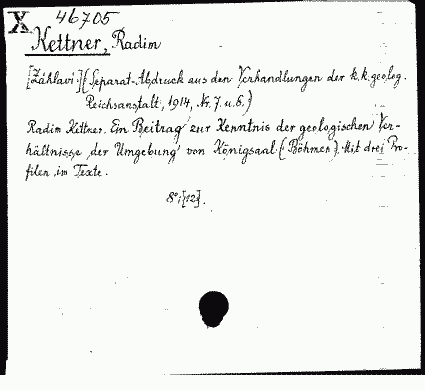 X 46705
Kettner, Radim
[Záhlaví:] (Separat-Abdruck aus den Verhandlungen der k. k. geolog.
Reichsanstalt, 1914, Nr. 7. u. 6.)
Radim Kettner. Ein Beitrag zur Kenntnis der geologischen Ver-
hältnisse der Umgebung von Königsaal (Böhmen). Mit drei Pro-
filen im Texte.
8°; [12].